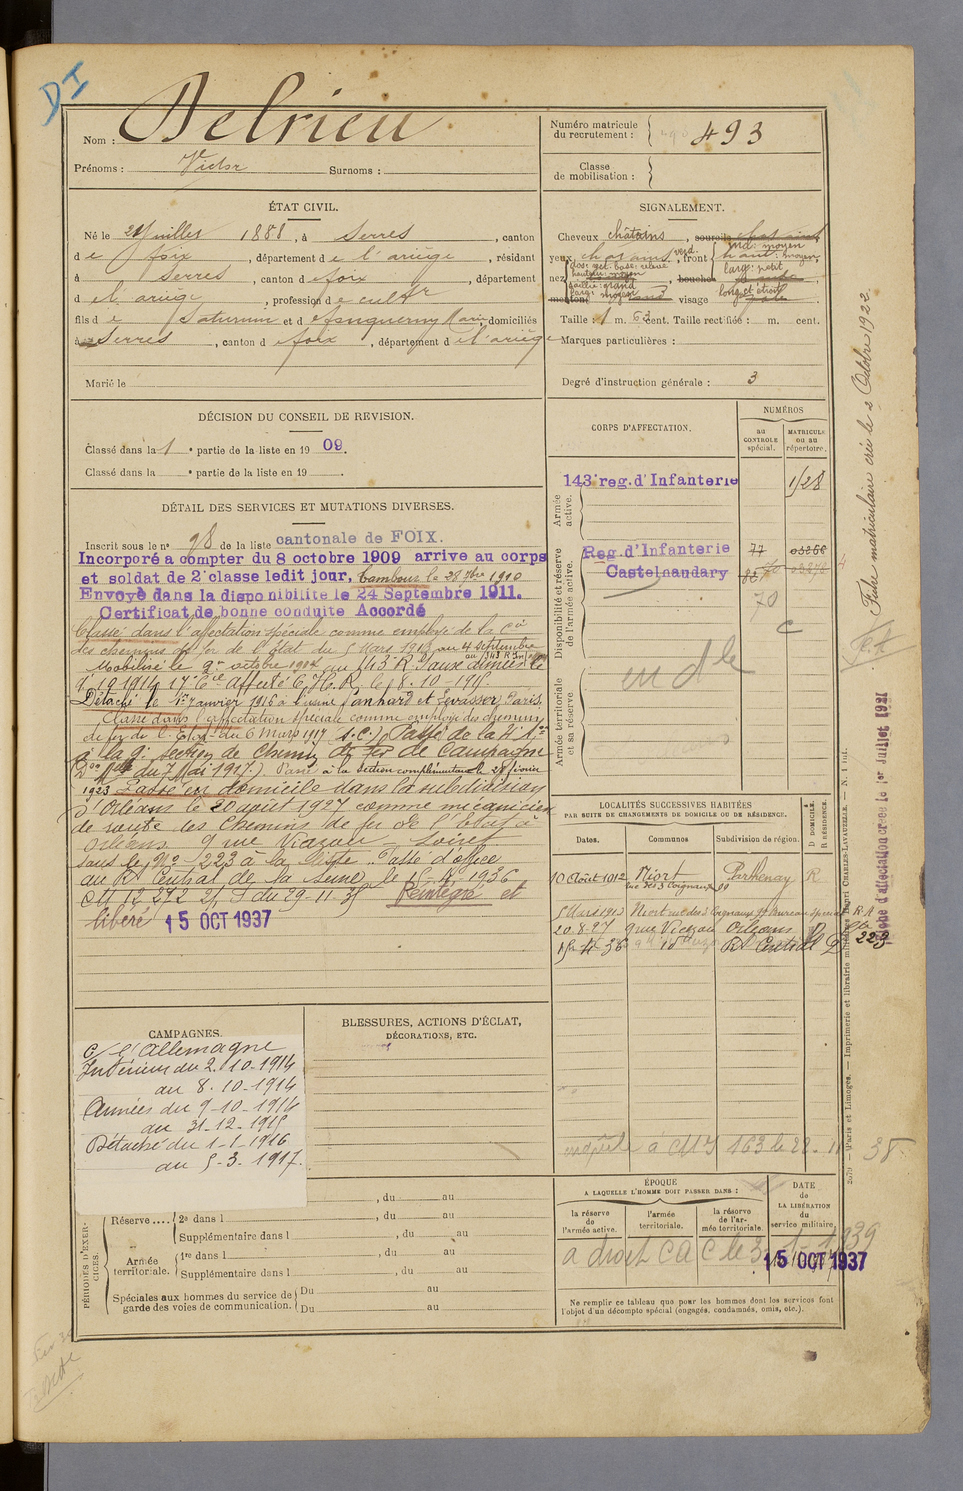 DI
Nom : Delrieu
Prénoms : Victor Surnoms :
Numéro matricule
du recrutement : 493
Classe
de mobilisation :
ÉTAT CIVIL.
Né le 21 Juillet 1888, à Serres, canton
de foix, département de l'ariège, résidant
à Serres, canton de foix, département
de l'ariège, profession de cultr
fils de Saturnin et d Marie, domiciliés
à Serres, canton d foix, département de l'ariège
Marié le
SIGNALEMENT.
Cheveux châtains, sourcils
yeux, front
nez, bouche
menton, visage
Taille : 1 m. 63 cent. Taille rectifiée : m. cent.
Marques particulières :
Degré d'instruction générale : 3
DÉCISION DU CONSEIL DE REVISION.
Classé dans la 1 e partie de la liste en 1909.
Classé dans la e partie de la liste en 19
DÉTAIL DES SERVICES ET MUTATIONS DIVERSES.
Inscrit sous le n° 98 de la liste cantonale de FOIX.
Incorporé à compter du 8 octobre 1909 arrive au corps
et soldat de 2e classe ledit jour, Tambour le 28 7bre 1910
Envoyé dans la disponibilité le 24 Septembre 1911.
Certificat de bonne conduite Accordé
Classé dans l'affectation spéciale comme employé de la Cie
des chemins de fer de l'Etat du 5 Mars 1913 au 4 septembre
Mobilisé le 2 octobre 1914 au 143 R. I aux armées le
9 10 1914 17e Cie affecté C.H.R. le 8-10-1915
Détaché le 1er Janvier 1916 à l'usine Panhard et Levassor Paris.
Classé dans l'affectation spéciale comme employé des chemins
de fer de l'Etat du 6 Mars 1917 (s.c.) Passé de la
à la 9e section de Chemin de fer de Campagne
du 7 Mai 1917). Passé à la Section complémentaire le 28 février
1923 Passé en domicile dans la subdivision
d'Orléans le 20 août 1927 comme mécanicien
de route des Chemins de fer de l'Etat à
Orléans 9 rue Viazau - Loiret
sous le N° 223 à la Passé d'office
au R Central de la Seine le 15-4-1936
CM 12 du 29-11-35 Réintégré et
libéré 15 OCT 1937
CORPS D'AFFECTATION.
NUMÉROS
au
CONTROLE
spécial.
MATRICULE
ou au
répertoire.
Armée
active.
143e reg. d'Infanterie 1128
Disponibilité et réserve
de l'armée active.
Reg. d'Infanterie 77
Castelnaudary
70
c
Armée territoriale
et sa réserve
en dle
Fiche matriculaire créée le 2 Octobre 1922
Fiche d'affectation créée le 1er Juillet 1921
LOCALITÉS SUCCESSIVES HABITÉES
PAR SUITE DE CHANGEMENTS DE DOMICILE OU DE RÉSIDENCE.
Dates. Communes Subdivision de région. D DOMICILE. R RÉSIDENCE.
10 Août 1912 Niort Parthenay R
5 Mars 1913 Niort rue des 3 Coignaux 90 bureau spécial R.A
20.8.27 9 rue Viazau Orléans D
15-4-36 R Central D
223
2079 — Paris et Limoges. — Imprimerie et librairie militaires Henri CHARLES-LAVAUZELLE. —
CAMPAGNES.
c/ l'Allemagne
Intérieur du 2.10-1914
au 8.10-1914
Armées du 9-10-1914
au 31-12-1915
Détaché du 1-1-1916
au 5-3.1917.
BLESSURES, ACTIONS D'ÉCLAT,
DÉCORATIONS, ETC.
à CM 163 le 22.11 38
PÉRIODES D'EXERCICES.
, du au
Réserve .... 2e dans l , du au
Supplémentaire dans l , du au
Armée
territoriale. 1re dans l , du au
Supplémentaire dans l , du au
Spéciales aux hommes du service de
garde des voies de communication. Du au
Du au
ÉPOQUE
A LAQUELLE L'HOMME DOIT PASSER DANS :
la réserve
de
l'armée active.
l'armée
territoriale.
la réserve
de l'armée territoriale.
DATE
de
LA LIBÉRATION
du
service militaire.
a droit CAC le 3 1-1939
15 OCT 1937
Ne remplir ce tableau que pour les hommes dont les services font
l'objet d'un décompte spécial (engagés, condamnés, omis, etc.).